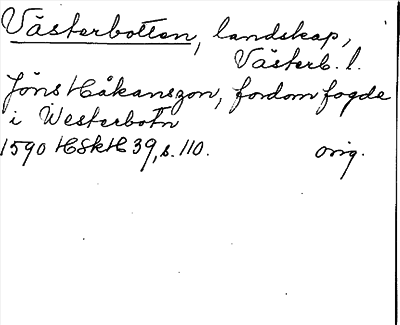 Västerbotten, landskap,
Västerb. l.
Jöns Håkanszon, fordom fogde
i Westerbotn
1590 HSkH 39, s. 110. orig.